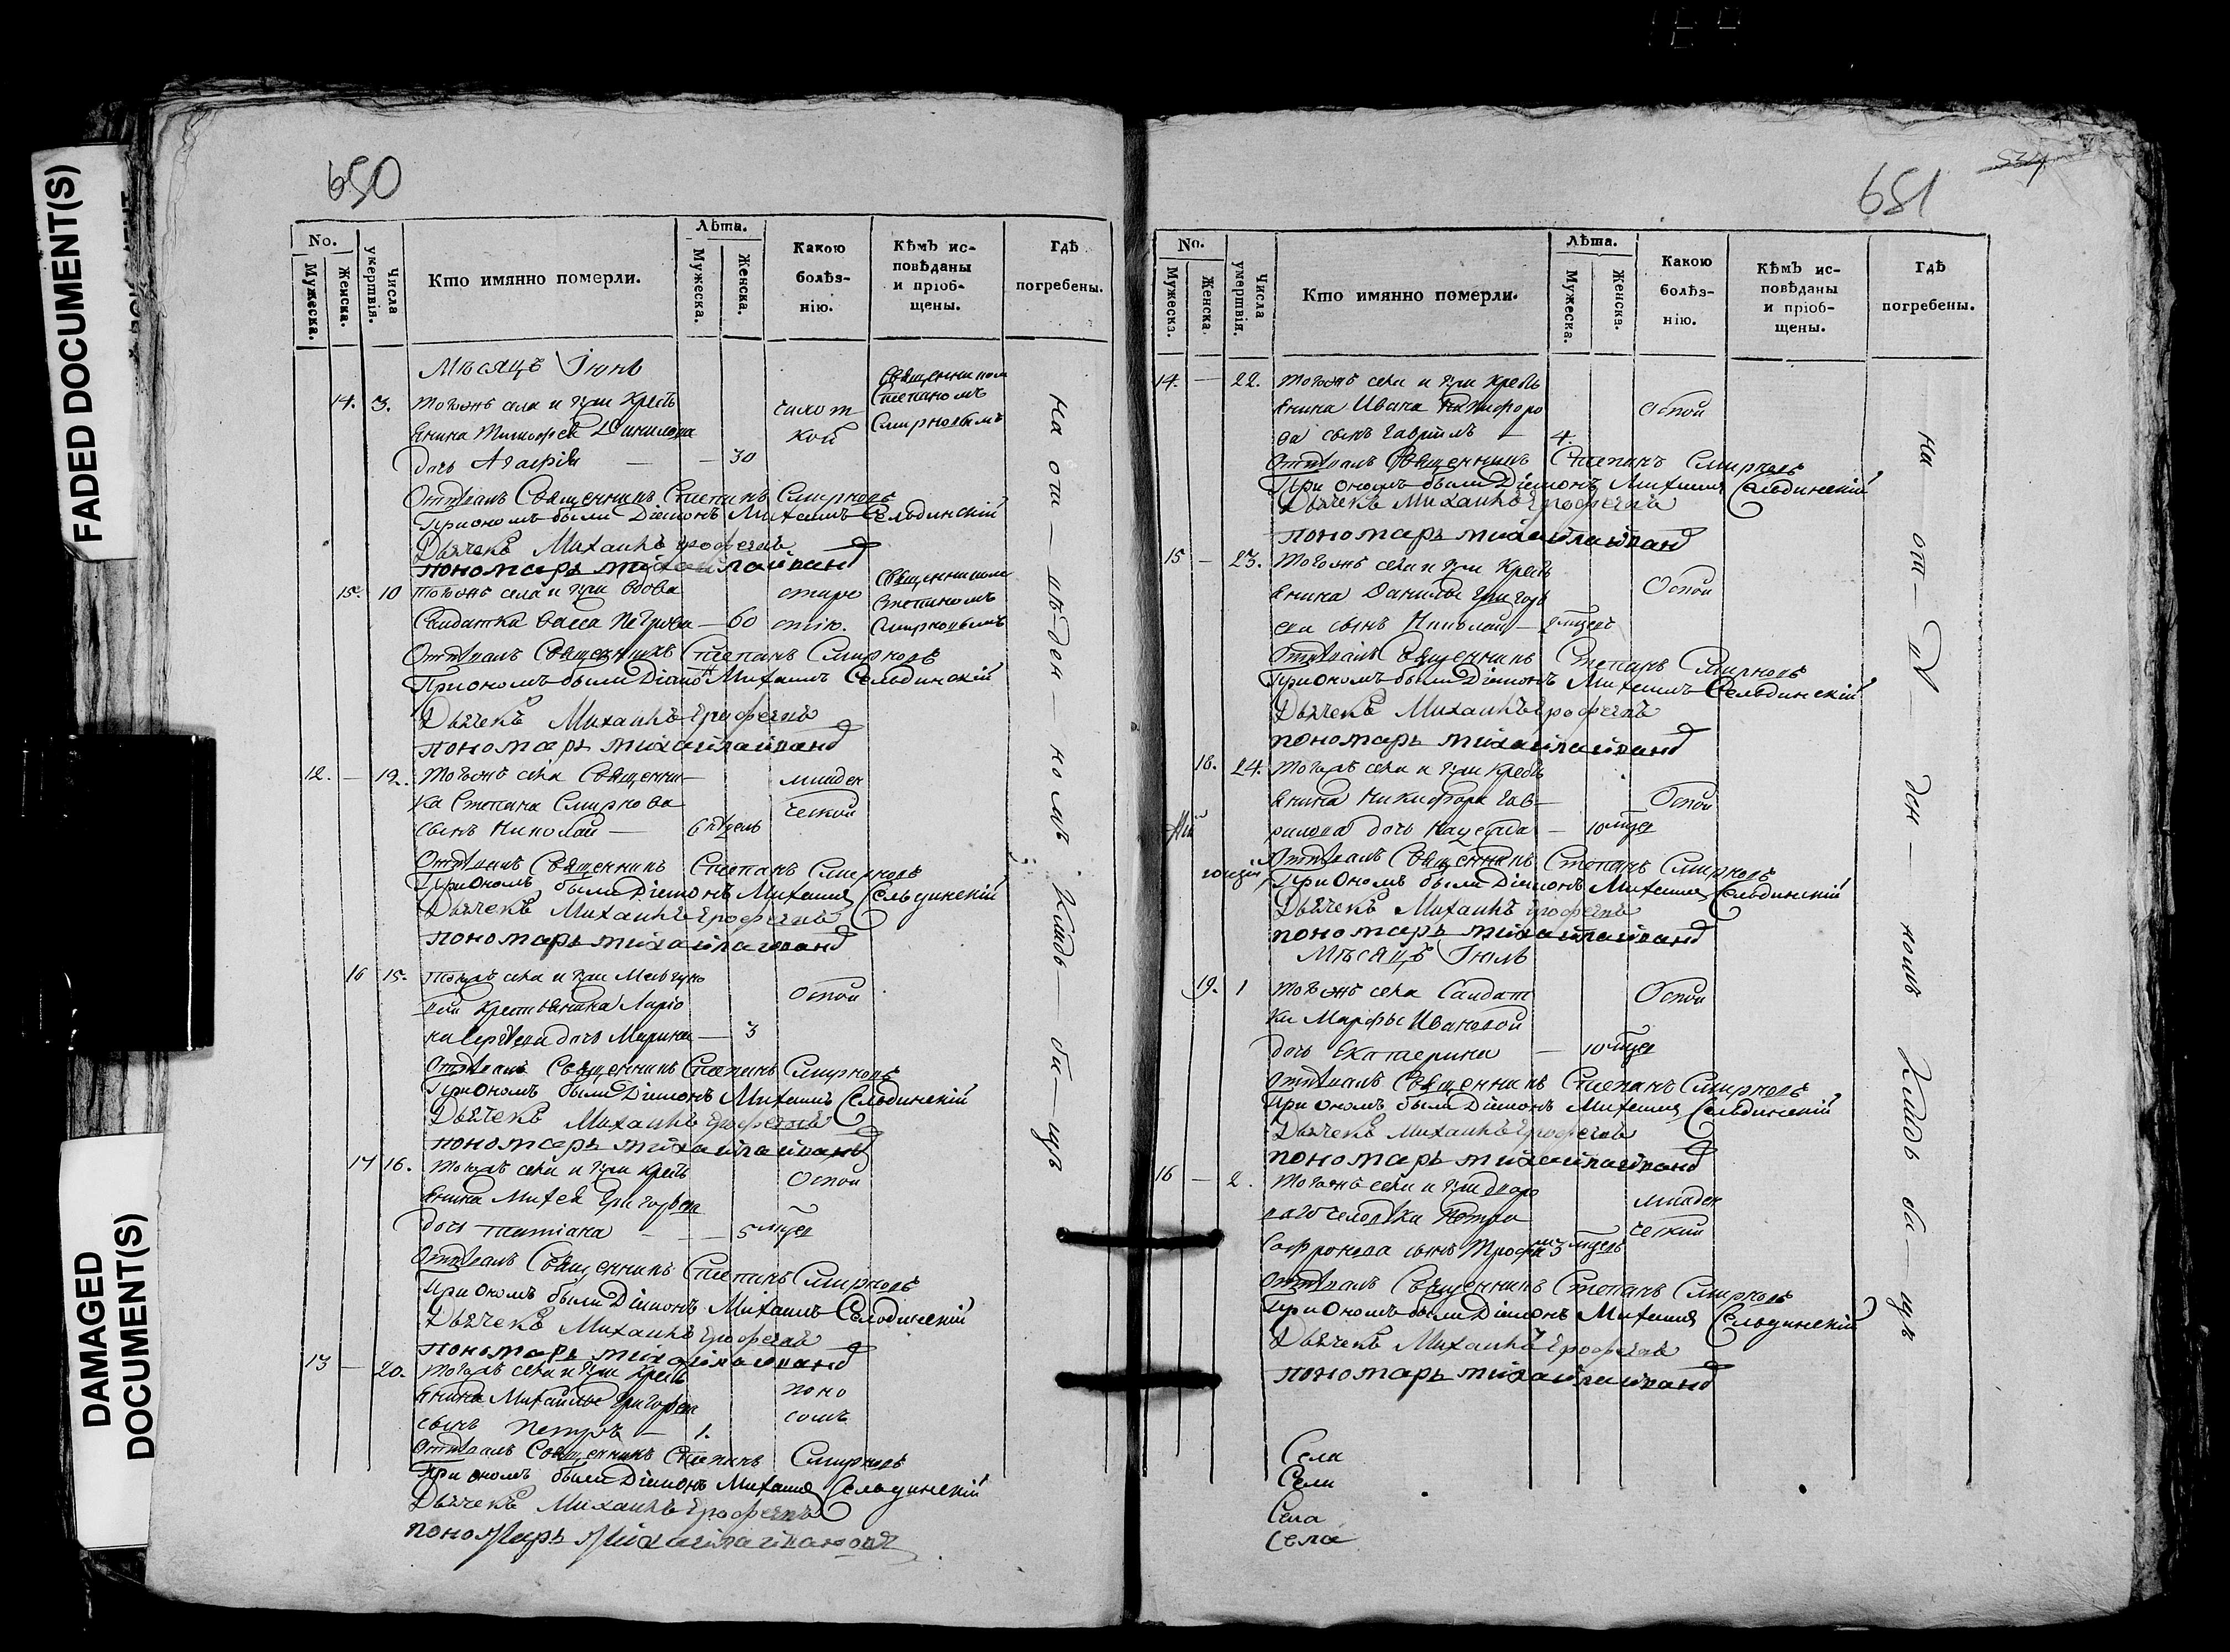 FADED DOCUMENT(S)
DAMAGED
DOCUMENT(S)
650
No.
Мужеска.
Женска.
Числа умертвія.
Кто имянно померли.
Лѣта.
Мужеска.
Женска.
Какою болѣз-
нію.
Кѣмъ ис-
повѣданы
и пріоб-
щены.
Гдѣ
погребены.
Мѣсяцъ Іюнь
14. 3. Тогожъ села и при Кресть
янина Тимофея Данилова
дочь Агафія — — 30
чахот
кой
Священником
Степаномъ
Смирновымъ
Отпѣвалъ Священникъ Степанъ Смирновъ
При ономъ были Діяконъ Михаилъ Сельдинскій
Дьячекъ Михаилъ Ерофеевъ
пономарь михайла
15. 10 Тогожъ села и при вдова
Салдатка Васса Петрова — 60
старо
стію.
Священником
Степаномъ
Смирновымъ
Отпѣвалъ Священникъ Степанъ Смирновъ
При ономъ были Діяконъ Михаилъ Сельдинскій
Дьячекъ Михаилъ Ерофеевъ
пономарь михайла
12. — 12. Тогожъ села Священни
ка Степана Смирнова
сынъ Николай — 6 недель
младен
ческой
Отпѣвалъ Священникъ Степанъ Смирновъ
При ономъ были Діяконъ Михаилъ Сельдинскій
Дьячекъ Михаилъ Ерофеевъ
пономарь михайла
16 15. Тогожъ села и при
крестьянина Ларіо
на Сергѣева дочь Марина — 3
Оспой
Отпѣвалъ Священникъ Степанъ Смирновъ
При ономъ были Діяконъ Михаилъ Сельдинскій
Дьячекъ Михаилъ Ерофеевъ
пономарь михайла
17 16. Тогожъ села и при кресть
янина Михея Григорьева
дочь татіана — — 5 мцов
Оспой
Отпѣвалъ Священникъ Степанъ Смирновъ
При ономъ были Діяконъ Михаилъ Сельдинскій
Дьячекъ Михаилъ Ерофеевъ
пономарь михайла
13 — 20. Тогожъ села и при кресть
янина Михайлы Григорьева
сынъ Петръ — 1.
поно
сомъ
Отпѣвалъ Священникъ Степанъ Смирновъ
При ономъ были Діяконъ Михаилъ Сельдинскій
Дьячекъ Михаилъ Ерофеевъ
пономарь михайла
на от — ве — ден — номъ кладъ — би — щѣ
651
No.
Мужеска.
Женска.
Числа умертвія.
Кто имянно померли.
Лѣта.
Мужеска.
Женска.
Какою
болѣз-
нію.
Кѣмъ ис-
повѣданы
и пріоб-
щены.
Гдѣ
погребены.
14. — 22. Тогожъ села и при кресть
янина Ивана Никифоро
ва сынъ Гаврилъ — 4.
Оспой
Отпѣвалъ Священникъ Степанъ Смирновъ
При ономъ были Діяконъ Михаилъ Сельдинскій
Дьячекъ Михаилъ Ерофеевъ
пономарь михайла
15 — 23. Тогожъ села и при Кресть
янина Данилы Григорь
ева сынъ Николай —
Оспой
Отпѣвалъ Священникъ Степанъ Смирновъ
При ономъ были Діяконъ Михаилъ Сельдинскій
Дьячекъ Михаилъ Ерофеевъ
пономарь михайла
18. 24. Тогожъ села и при кресть
янина Никифора Гав
рилова дочь Надежда — 10 мцов
Оспой
Отпѣвалъ Священникъ Степанъ Смирновъ
При ономъ были Діяконъ Михаилъ Сельдинскій
Дьячекъ Михаилъ Ерофеевъ
пономарь михайла
Мѣсяцъ Іюль
19. 1 Тогожъ села Салдат
ки Марфы Ивановой
дочь Екатерина — 10 мцов
Оспой
Отпѣвалъ Священникъ Степанъ Смирновъ
При ономъ были Діяконъ Михаилъ Сельдинскій
Дьячекъ Михаилъ Ерофеевъ
пономарь михайла
16 — 2. Тогожъ села и при дворо
ваго человѣка Петра
Софронова сынъ Трофим 3
младен
ческой
Отпѣвалъ Священникъ Степанъ Смирновъ
При ономъ были Діяконъ Михаилъ Сельдинскій
Дьячекъ Михаилъ Ерофеевъ
пономарь михайла
на от — ве — ден — номъ кладъ би — щѣ
Села
Села
Села
Села